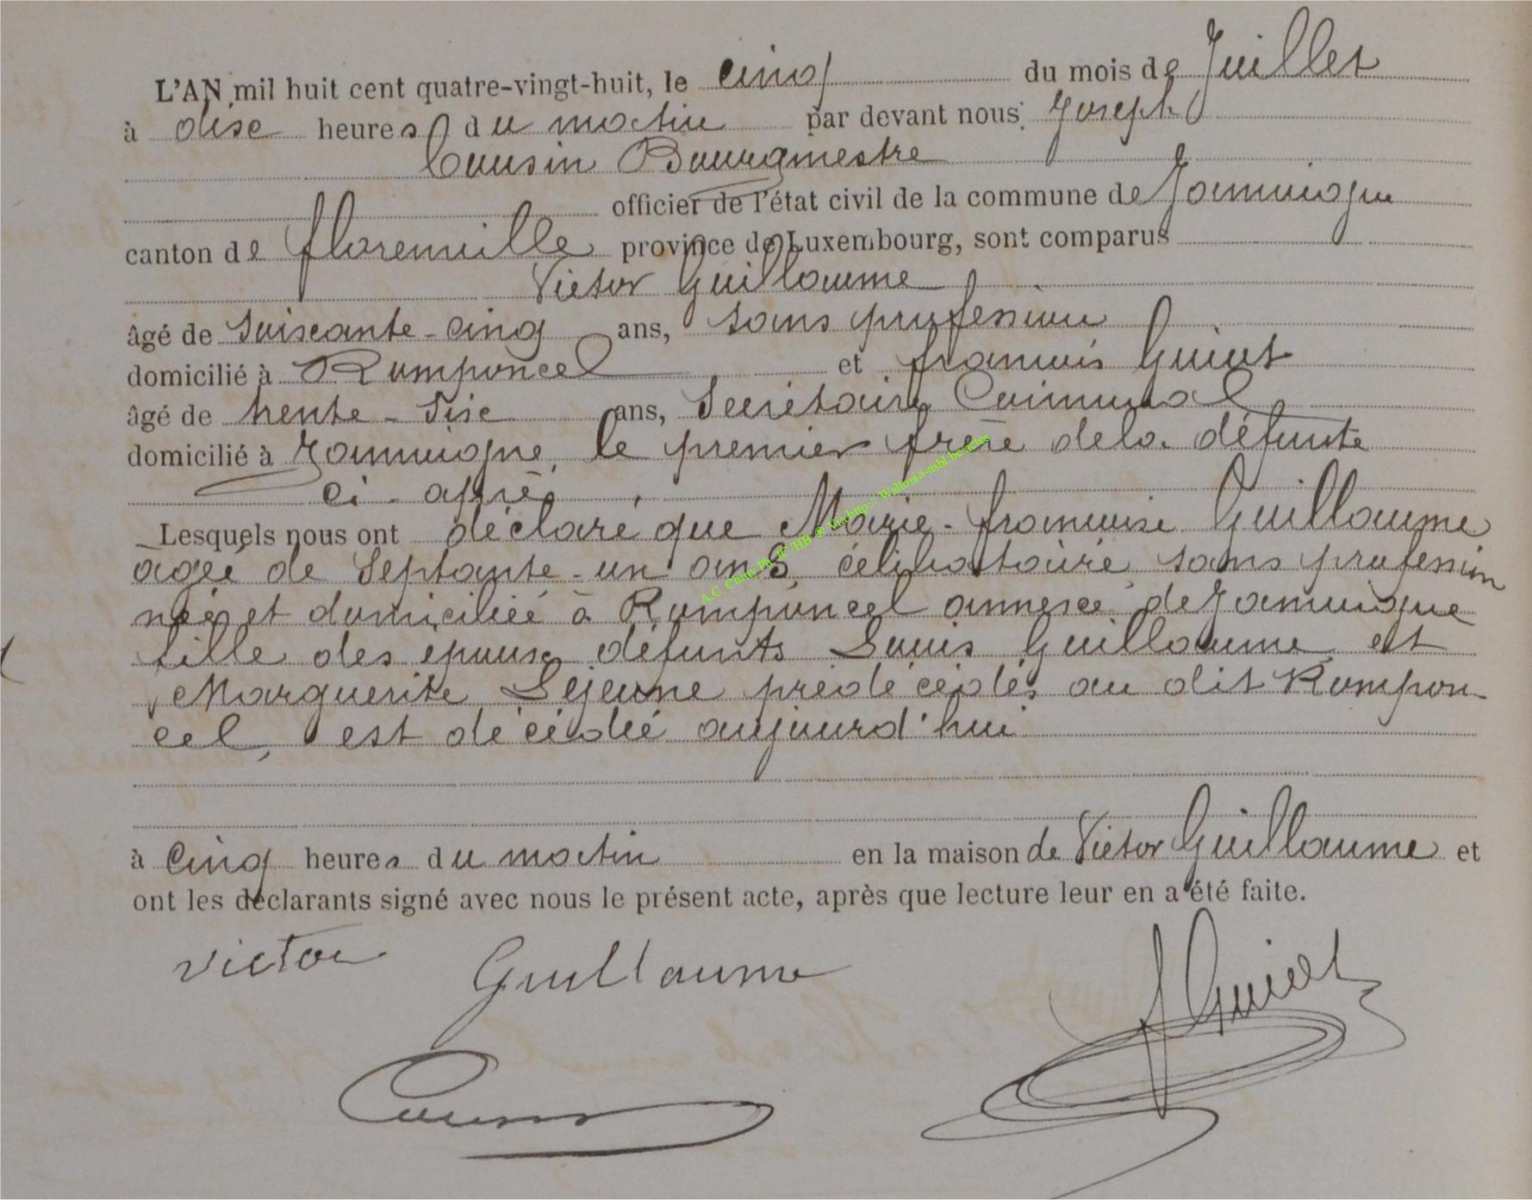 L'AN mil huit cent quatre-vingt-huit, le cinq du mois de Juillet
à dix heures du matin par devant nous Joseph
Cousin Bourgmestre
officier de l'état civil de la commune de Jamoigne
canton de florenville province de Luxembourg, sont comparus
Victor Guillaume
âgé de soixante-cinq ans, sans profession
domicilié à Romponcel et françois Guiot
âgé de trente-six ans, Secrétaire Communal
domicilié à Jamoigne, le premier frère de la défunte
ci-après
Lesquels nous ont déclaré que Marie-françoise Guillaume
âgée de Septante-un ans, célibataire, sans profession
née et domiciliée à Romponcel annexe de Jamoigne
fille des époux défunts Louis Guillaume et
Marguerite Lejeune prédécédés au dit Rompon-
cel, est décédée aujourd'hui
à cinq heures du matin en la maison de Victor Guillaume et
ont les déclarants signé avec nous le présent acte, après que lecture leur en a été faite.
Victor Guillaume
f Guiot
Cousin